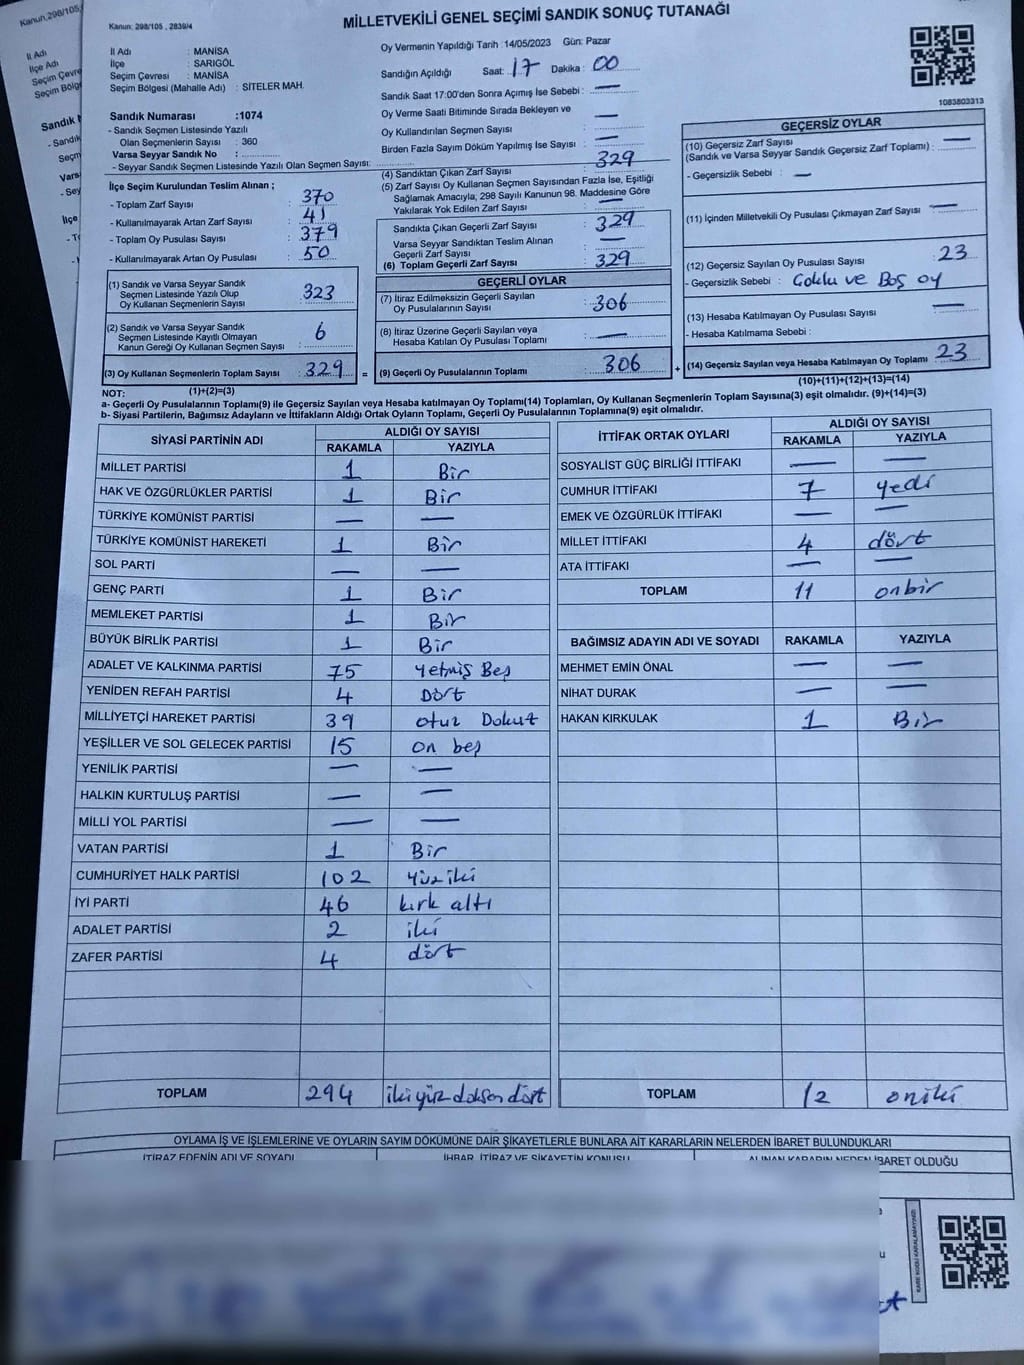 Kanun: 298/105 , 2839/4
MİLLETVEKİLİ GENEL SEÇİMİ SANDIK SONUÇ TUTANAĞI
İl Adı : MANİSA
İlçe : SARIGÖL
Seçim Çevresi : MANİSA
Seçim Bölgesi (Mahalle Adı) : SİTELER MAH.
Sandık Numarası :1074
- Sandık Seçmen Listesinde Yazılı
Olan Seçmenlerin Sayısı : 360
Varsa Seyyar Sandık No :
- Seyyar Sandık Seçmen Listesinde Yazılı Olan Seçmen Sayısı:
İlçe Seçim Kurulundan Teslim Alınan ;
- Toplam Zarf Sayısı : 370
- Kullanılmayarak Artan Zarf Sayısı : 41
- Toplam Oy Pusulası Sayısı : 379
- Kullanılmayarak Artan Oy Pusulası : 50
(1) Sandık ve Varsa Seyyar Sandık
Seçmen Listesinde Yazılı Olup
Oy Kullanan Seçmenlerin Sayısı : 323
(2) Sandık ve Varsa Seyyar Sandık
Seçmen Listesinde Kayıtlı Olmayan
Kanun Gereği Oy Kullanan Seçmen Sayısı : 6
(3) Oy Kullanan Seçmenlerin Toplam Sayısı : 329 =
Oy Vermenin Yapıldığı Tarih :14/05/2023 Gün: Pazar
Sandığın Açıldığı Saat: 17 Dakika : 00
Sandık Saat 17:00'den Sonra Açımış İse Sebebi : —
Oy Verme Saati Bitiminde Sırada Bekleyen ve
Oy Kullandırılan Seçmen Sayısı —
Birden Fazla Sayım Döküm Yapılmış İse Sayısı : —
(4) Sandıktan Çıkan Zarf Sayısı : 329
(5) Zarf Sayısı Oy Kullanan Seçmen Sayısından Fazla İse, Eşitliği
Sağlamak Amacıyla, 298 Sayılı Kanunun 98. Maddesine Göre
Yakılarak Yok Edilen Zarf Sayısı : —
Sandıkta Çıkan Geçerli Zarf Sayısı : 329
Varsa Seyyar Sandıktan Teslim Alınan
Geçerli Zarf Sayısı : —
(6) Toplam Geçerli Zarf Sayısı : 329
GEÇERLİ OYLAR
(7) İtiraz Edilmeksizin Geçerli Sayılan
Oy Pusulalarının Sayısı : 306
(8) İtiraz Üzerine Geçerli Sayılan veya
Hesaba Katılan Oy Pusulası Toplamı : —
(9) Geçerli Oy Pusulalarının Toplamı : 306 +
1083803313
GEÇERSİZ OYLAR
(10) Geçersiz Zarf Sayısı
(Sandık ve Varsa Seyyar Sandık Geçersiz Zarf Toplamı) : —
- Geçersizlik Sebebi : —
(11) İçinden Milletvekili Oy Pusulası Çıkmayan Zarf Sayısı : —
(12) Geçersiz Sayılan Oy Pusulası Sayısı : 23
- Geçersizlik Sebebi : Çoklu ve Boş oy
(13) Hesaba Katılmayan Oy Pusulası Sayısı : —
- Hesaba Katılmama Sebebi :
(14) Geçersiz Sayılan veya Hesaba Katılmayan Oy Toplamı : 23
NOT: (1)+(2)=(3) (10)+(11)+(12)+(13)=(14)
a- Geçerli Oy Pusulalarının Toplamı(9) ile Geçersiz Sayılan veya Hesaba katılmayan Oy Toplamı(14) Toplamları, Oy Kullanan Seçmenlerin Toplam Sayısına(3) eşit olmalıdır. (9)+(14)=(3)
b- Siyasi Partilerin, Bağımsız Adayların ve İttifakların Aldığı Ortak Oyların Toplamı, Geçerli Oy Pusulalarının Toplamına(9) eşit olmalıdır.
SİYASİ PARTİNİN ADI ALDIĞI OY SAYISI
RAKAMLA YAZIYLA
MİLLET PARTİSİ 1 Bir
HAK VE ÖZGÜRLÜKLER PARTİSİ 1 Bir
TÜRKİYE KOMÜNİST PARTİSİ — —
TÜRKİYE KOMÜNİST HAREKETİ 1 Bir
SOL PARTİ — —
GENÇ PARTİ 1 Bir
MEMLEKET PARTİSİ 1 Bir
BÜYÜK BİRLİK PARTİSİ 1 Bir
ADALET VE KALKINMA PARTİSİ 75 yetmiş Beş
YENİDEN REFAH PARTİSİ 4 Dört
MİLLİYETÇİ HAREKET PARTİSİ 39 otuz Dokuz
YEŞİLLER VE SOL GELECEK PARTİSİ 15 on beş
YENİLİK PARTİSİ — —
HALKIN KURTULUŞ PARTİSİ — —
MİLLİ YOL PARTİSİ — —
VATAN PARTİSİ 1 Bir
CUMHURİYET HALK PARTİSİ 102 yüz iki
İYİ PARTİ 46 kırk altı
ADALET PARTİSİ 2 iki
ZAFER PARTİSİ 4 dört
TOPLAM 294 iki yüz doksan dört
İTTİFAK ORTAK OYLARI ALDIĞI OY SAYISI
RAKAMLA YAZIYLA
SOSYALİST GÜÇ BİRLİĞİ İTTİFAKI — —
CUMHUR İTTİFAKI 7 yedi
EMEK VE ÖZGÜRLÜK İTTİFAKI — —
MİLLET İTTİFAKI 4 dört
ATA İTTİFAKI — —
TOPLAM 11 onbir
BAĞIMSIZ ADAYIN ADI VE SOYADI RAKAMLA YAZIYLA
MEHMET EMİN ÖNAL — —
NİHAT DURAK — —
HAKAN KIRKULAK 1 Bir
TOPLAM 12 oniki
OYLAMA İŞ VE İŞLEMLERİNE VE OYLARIN SAYIM DÖKÜMÜNE DAİR ŞİKAYETLERLE BUNLARA AİT KARARLARIN NELERDEN İBARET BULUNDUKLARI
İTİRAZ EDENİN ADI VE SOYADI İHBAR, İTİRAZ VE ŞİKAYETİN KONUSU ALINAN KARARIN NEDEN İBARET OLDUĞU